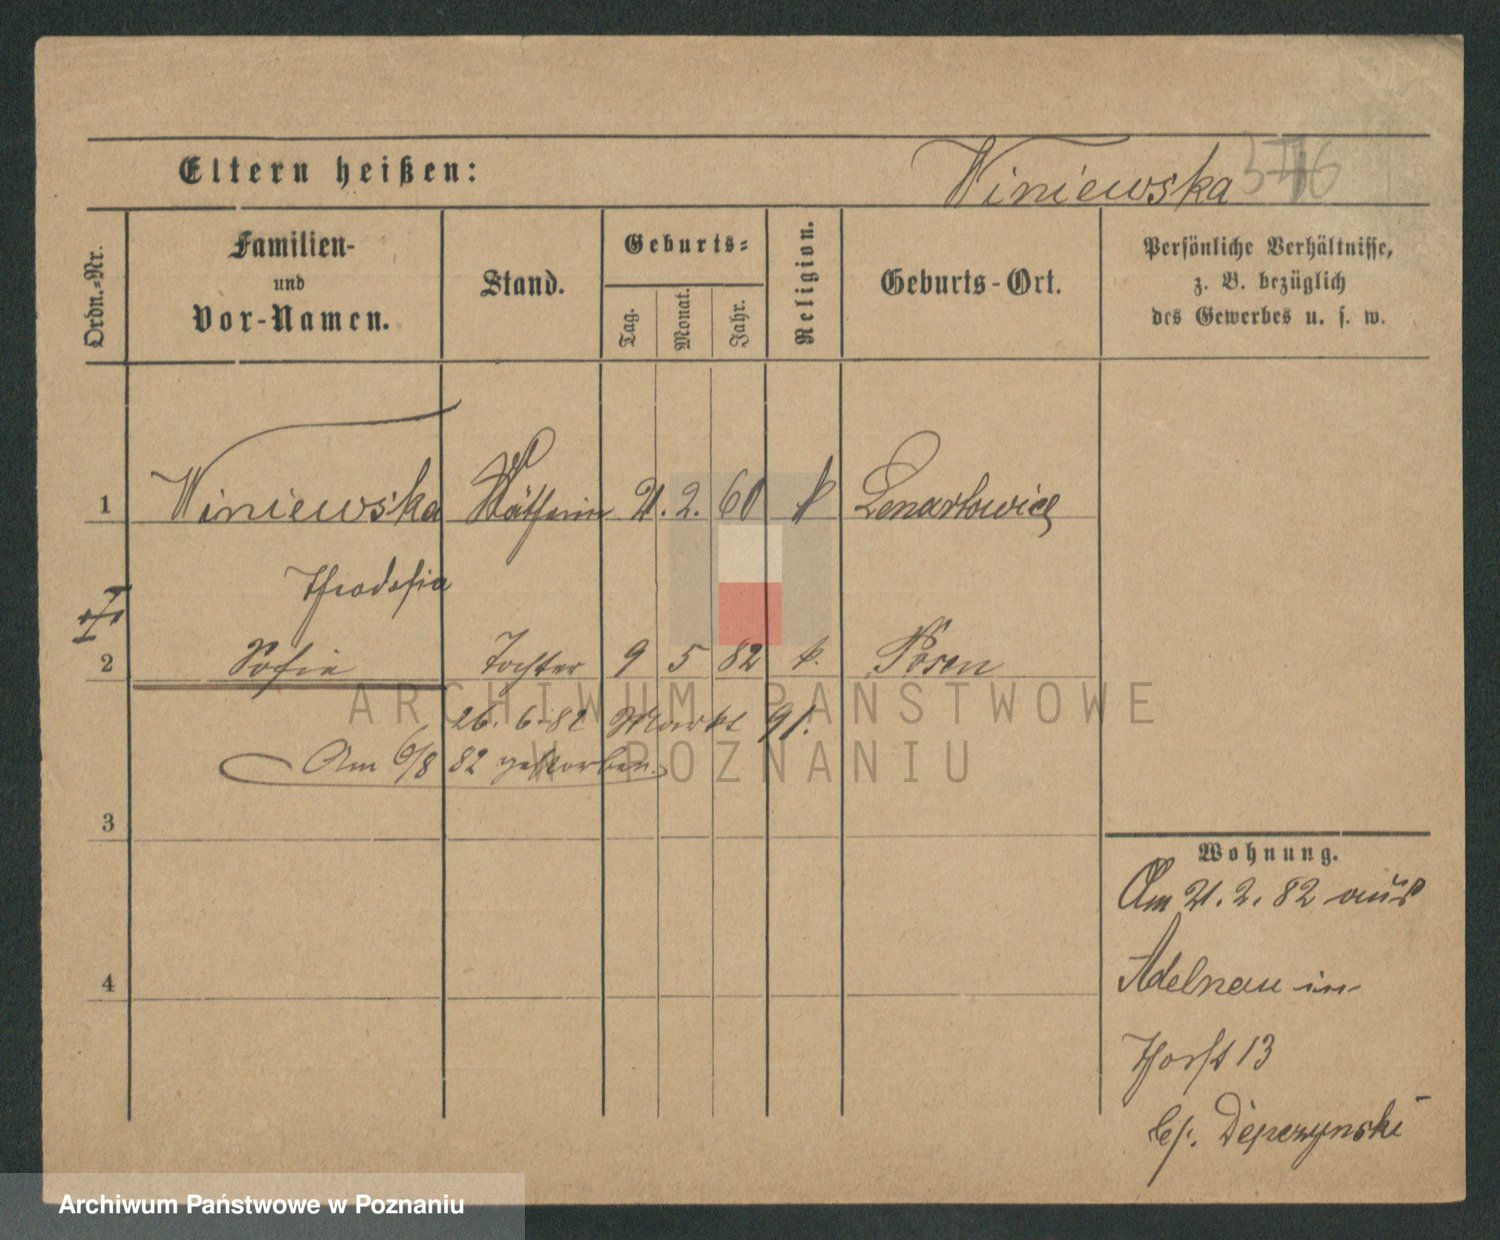 Eltern heißen:
Winiewska 376
Ordn.-Nr.
Familien-
und
Vor-Namen.
Stand.
Geburts-
Tag.
Monat.
Jahr.
Religion.
Geburts-Ort.
Persönliche Verhältnisse,
z. B. bezüglich
des Gewerbes u. s. w.
1 Winiewska 21. 2. 60 k Lenartowice
Theodosia
2 Sofie Tochter 9 5 82 k. Posen
26. 6. 82 Markt 91.
Am 6/8 82 gestorben.
3
4
Wohnung.
Am 21. 2. 82 aus
Adelnau in
Thorst 13
bei. Depczynski
ARCHIWUM PAŃSTWOWE
W POZNANIU
Archiwum Państwowe w Poznaniu